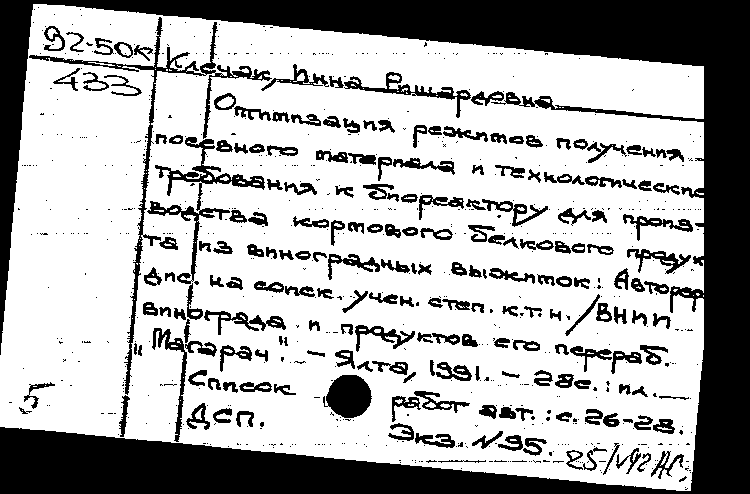 92-50к
433
Клечак, Инна Ришардовна
Оптимизация режимов получения
посевного материала и технологические
требования к биореактору для произ-
водства кормового белкового продук
та из виноградных выжимок: Автореф
дис. на соиск. учен. степ. к.т.н. / ВНИИ
винограда и продуктов его перераб.
"Магарач". - Ялта, 1991. - 28с.: ил.
Список работ авт.: с. 26-28.
ДСП. Экз. №95.
5 25/V92